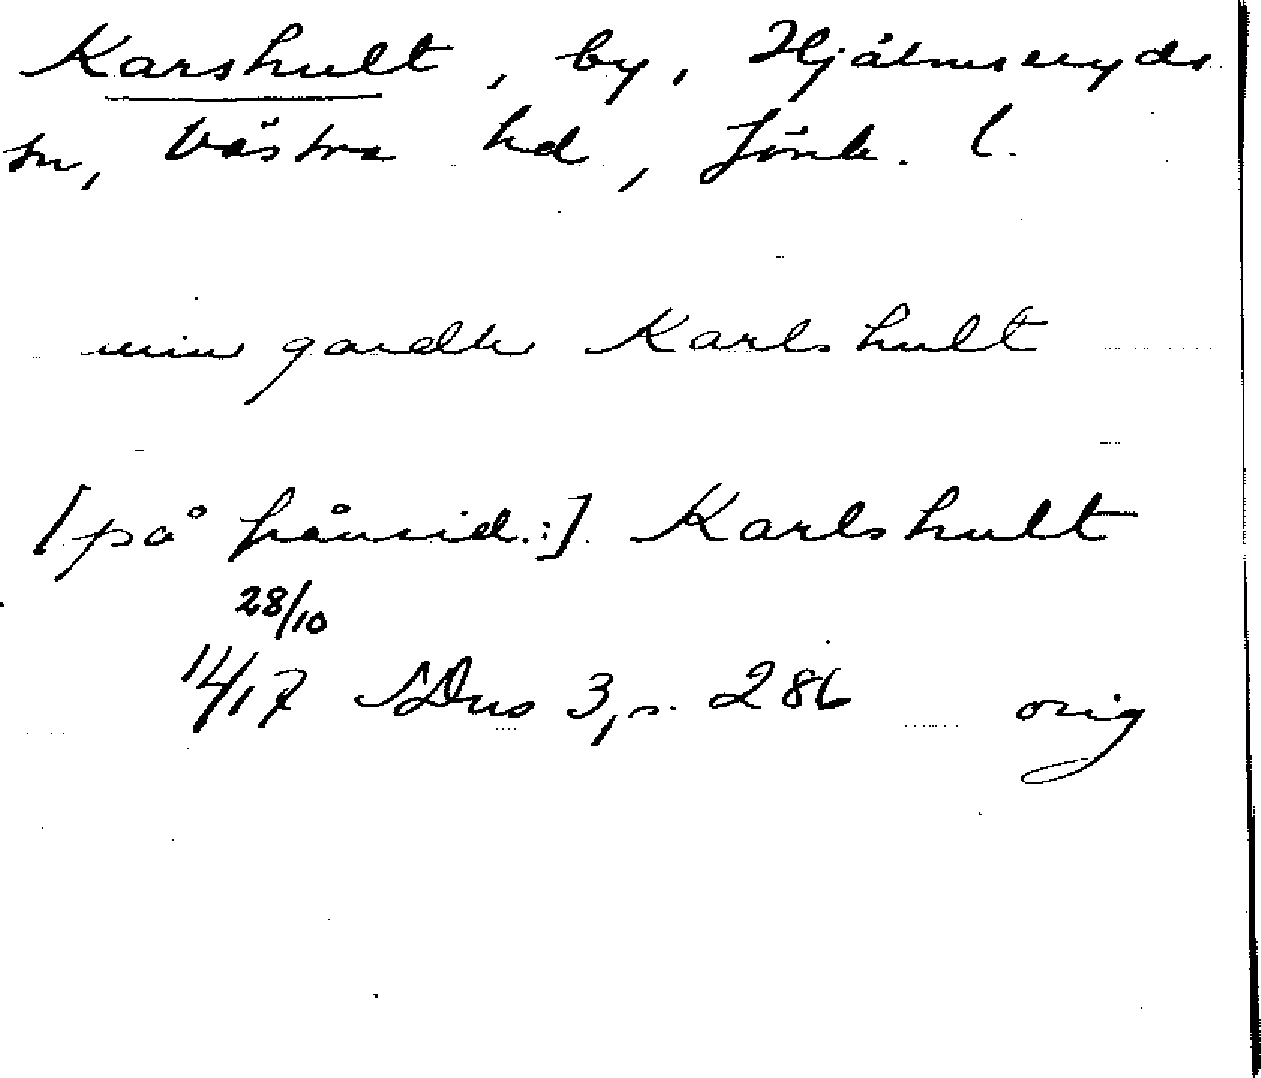 Karshult, by, Hjälmseryds
sn, Västra hd, Jönk. l.
min gardh Karlshult
[på frånsid.:] Karlshult
28/10
14/17 SDns 3, s. 286 orig